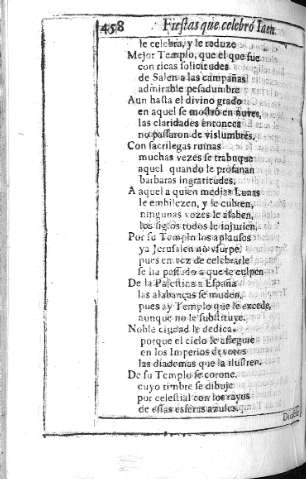 458 Fiestas que celebró Iaen.
le celebra, y le reduze
Mejor Templo, que el que fue
con ricas solicitudes
de Salen a las campañas
admirable pesadumbre
Aun hasta el divino grado
en aquel se mostró en nuves,
las claridades entonces
no passaron de vislumbres,
Con sacrilegas ruinas
muchas vezes se trabuque
aquel quando le profanan
barbaras ingratitudes,
A aquel a quien medias Lunas
le embilezen, y le cubren,
ningunas vozes le alaben,
los siglos todos le injurien.
Por su Templo los aplausos
ya Jerusalen no vsurpe,
pues en vez de celebrarle
se ha passado a que le culpen
De la Palestina a España
las alabanças se muden,
pues ay Templo que le excede,
aunque no le substituye.
Noble ciudad le dedica,
porque el cielo le assegure
en los Imperios devotos
las diademas que la ilustren.
De su Templo se corone,
cuyo timbre se dibuje
por celestial con los rayos
de essas esferas azules.